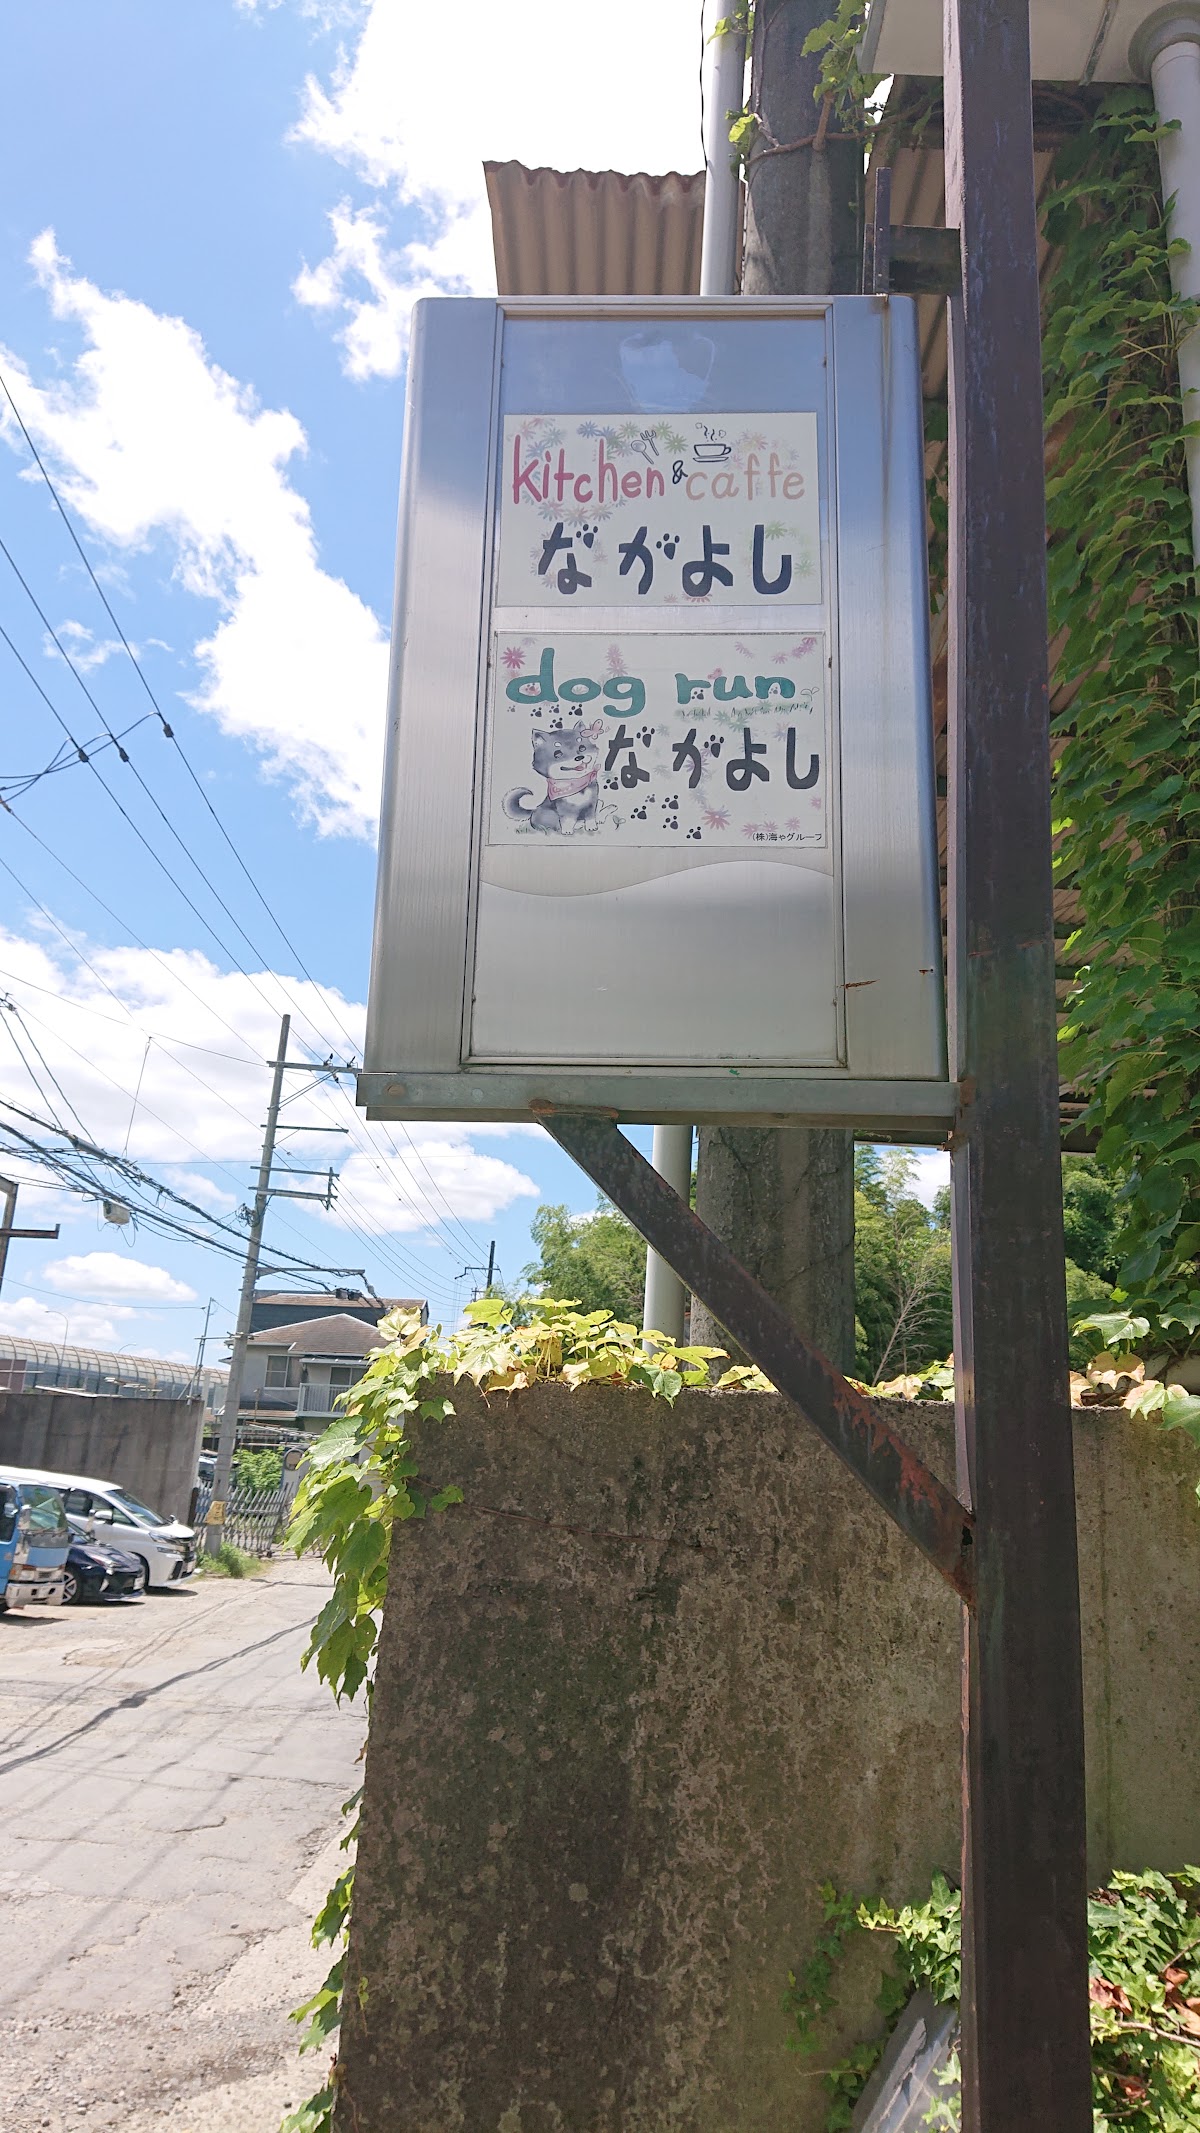 kitchen & caffe
なかよし
dog run
なかよし
(株)海やグループ